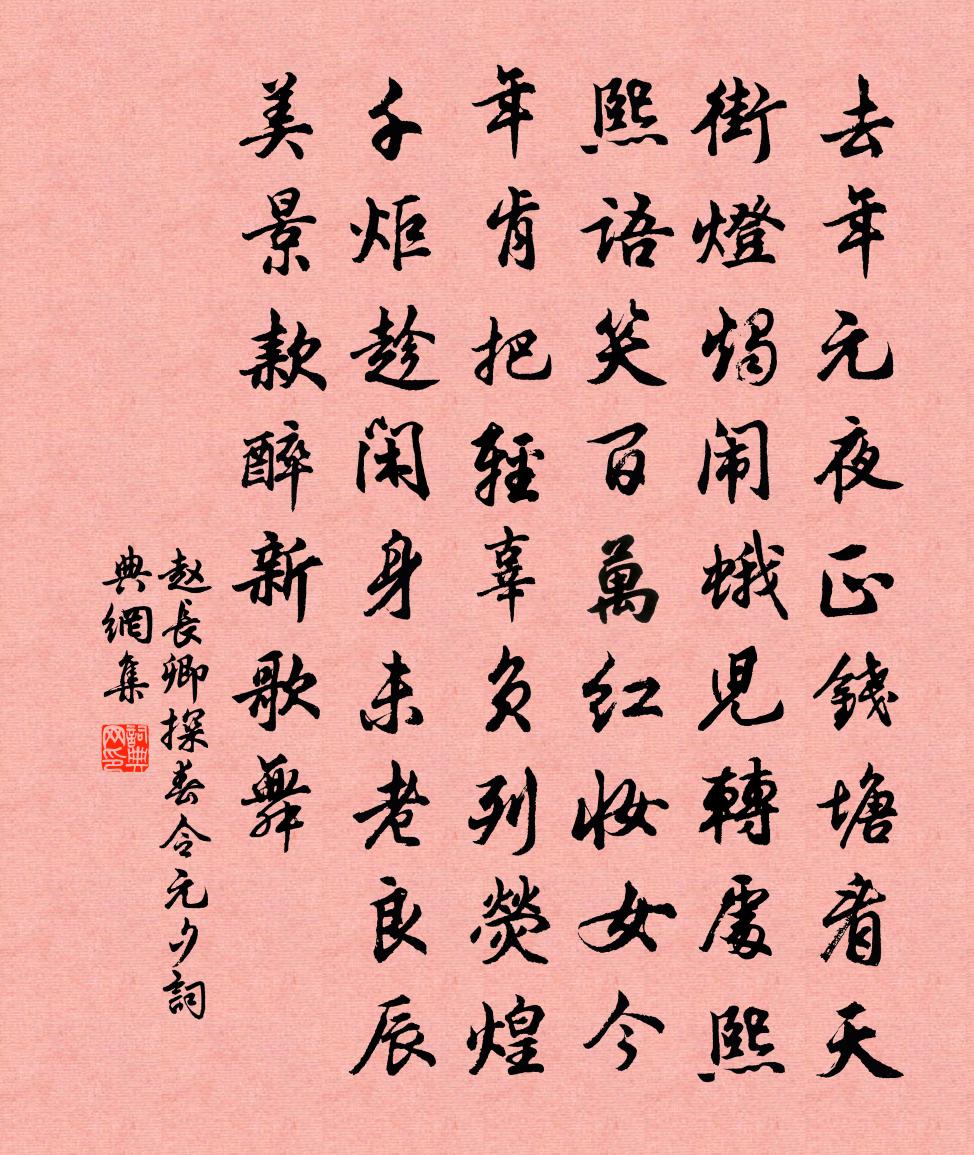 去年元夜正錢塘看天
街燈燭闹蛾児轉處熙
熙語笑百萬红妆女今
年肯把輕辜负列熒煌
千炬趁闲身未老良辰
美景款醉新歌舞
赵長卿探春令元夕詞
典網集
詞典网印